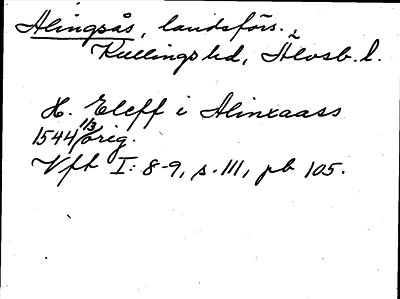 Alingsås, landsförs.,
Kullings hd, Älvsb. l.
H. Eleff i Alinxaass
1544 1/3 orig.
Vft I: 8-9, s. 111, pb 105.